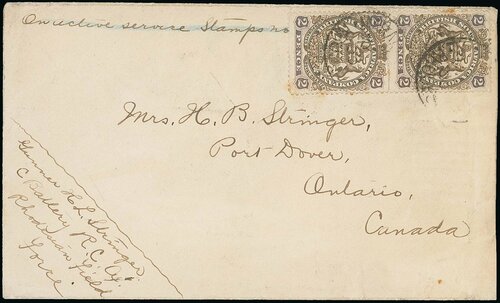 On active service Stamps no
2 2 2 2
PENCE
2 2 2 2
Mrs. H. B. Stringer,
Port Dover,
Ontario,
Canada
Gunner H. L. Stringer.
C Battery R. C. A.
Rhodesian Field
Force.